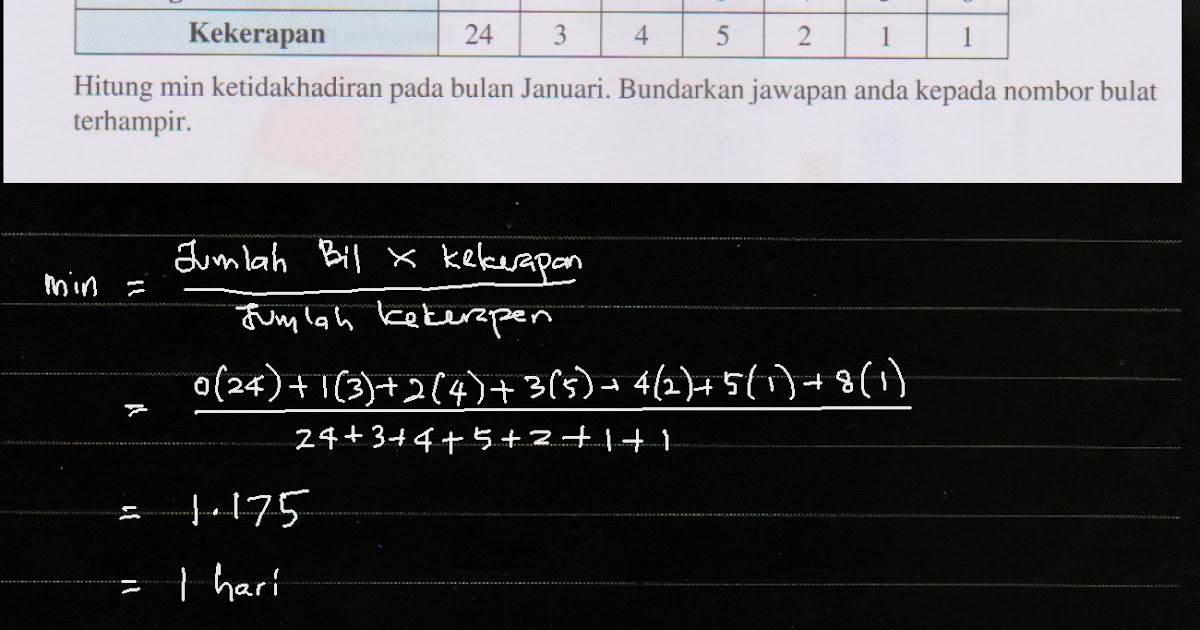 Kekerapan 24 3 4 5 2 1 1
Hitung min ketidakhadiran pada bulan Januari. Bundarkan jawapan anda kepada nombor bulat
terhampir.
Jumlah Bil × kekerapan
min =
Jumlah kekerapan
= 0(24)+1(3)+2(4)+3(5)+4(2)+5(1)+8(1)
24+3+4+5+2+1+1
= 1.175
= 1 hari